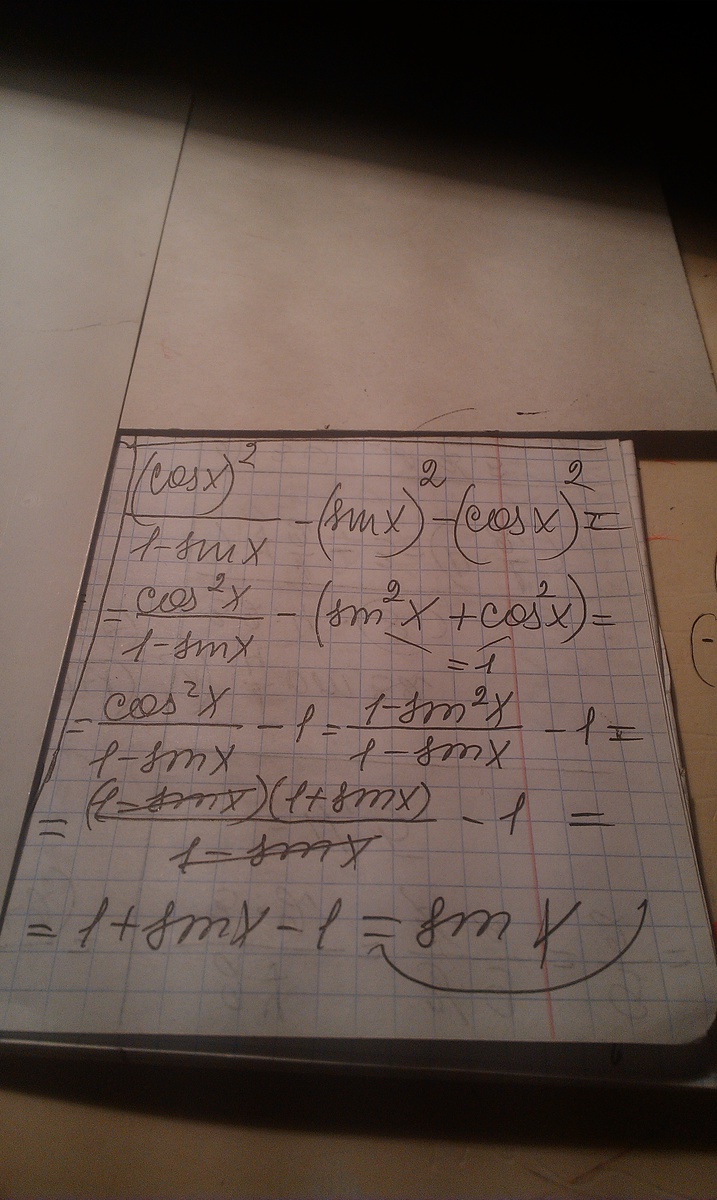 (cosx)²/1-sinx - (sinx)² - (cosx)² =
= cos²x/1-sinx - (sin²x + cos²x) =
=1
= cos²x/1-sinx - 1 = 1-sin²x/1-sinx - 1 =
= (1-sinx)(1+sinx)/1-sinx - 1 =
= 1+sinx - 1 = sin x